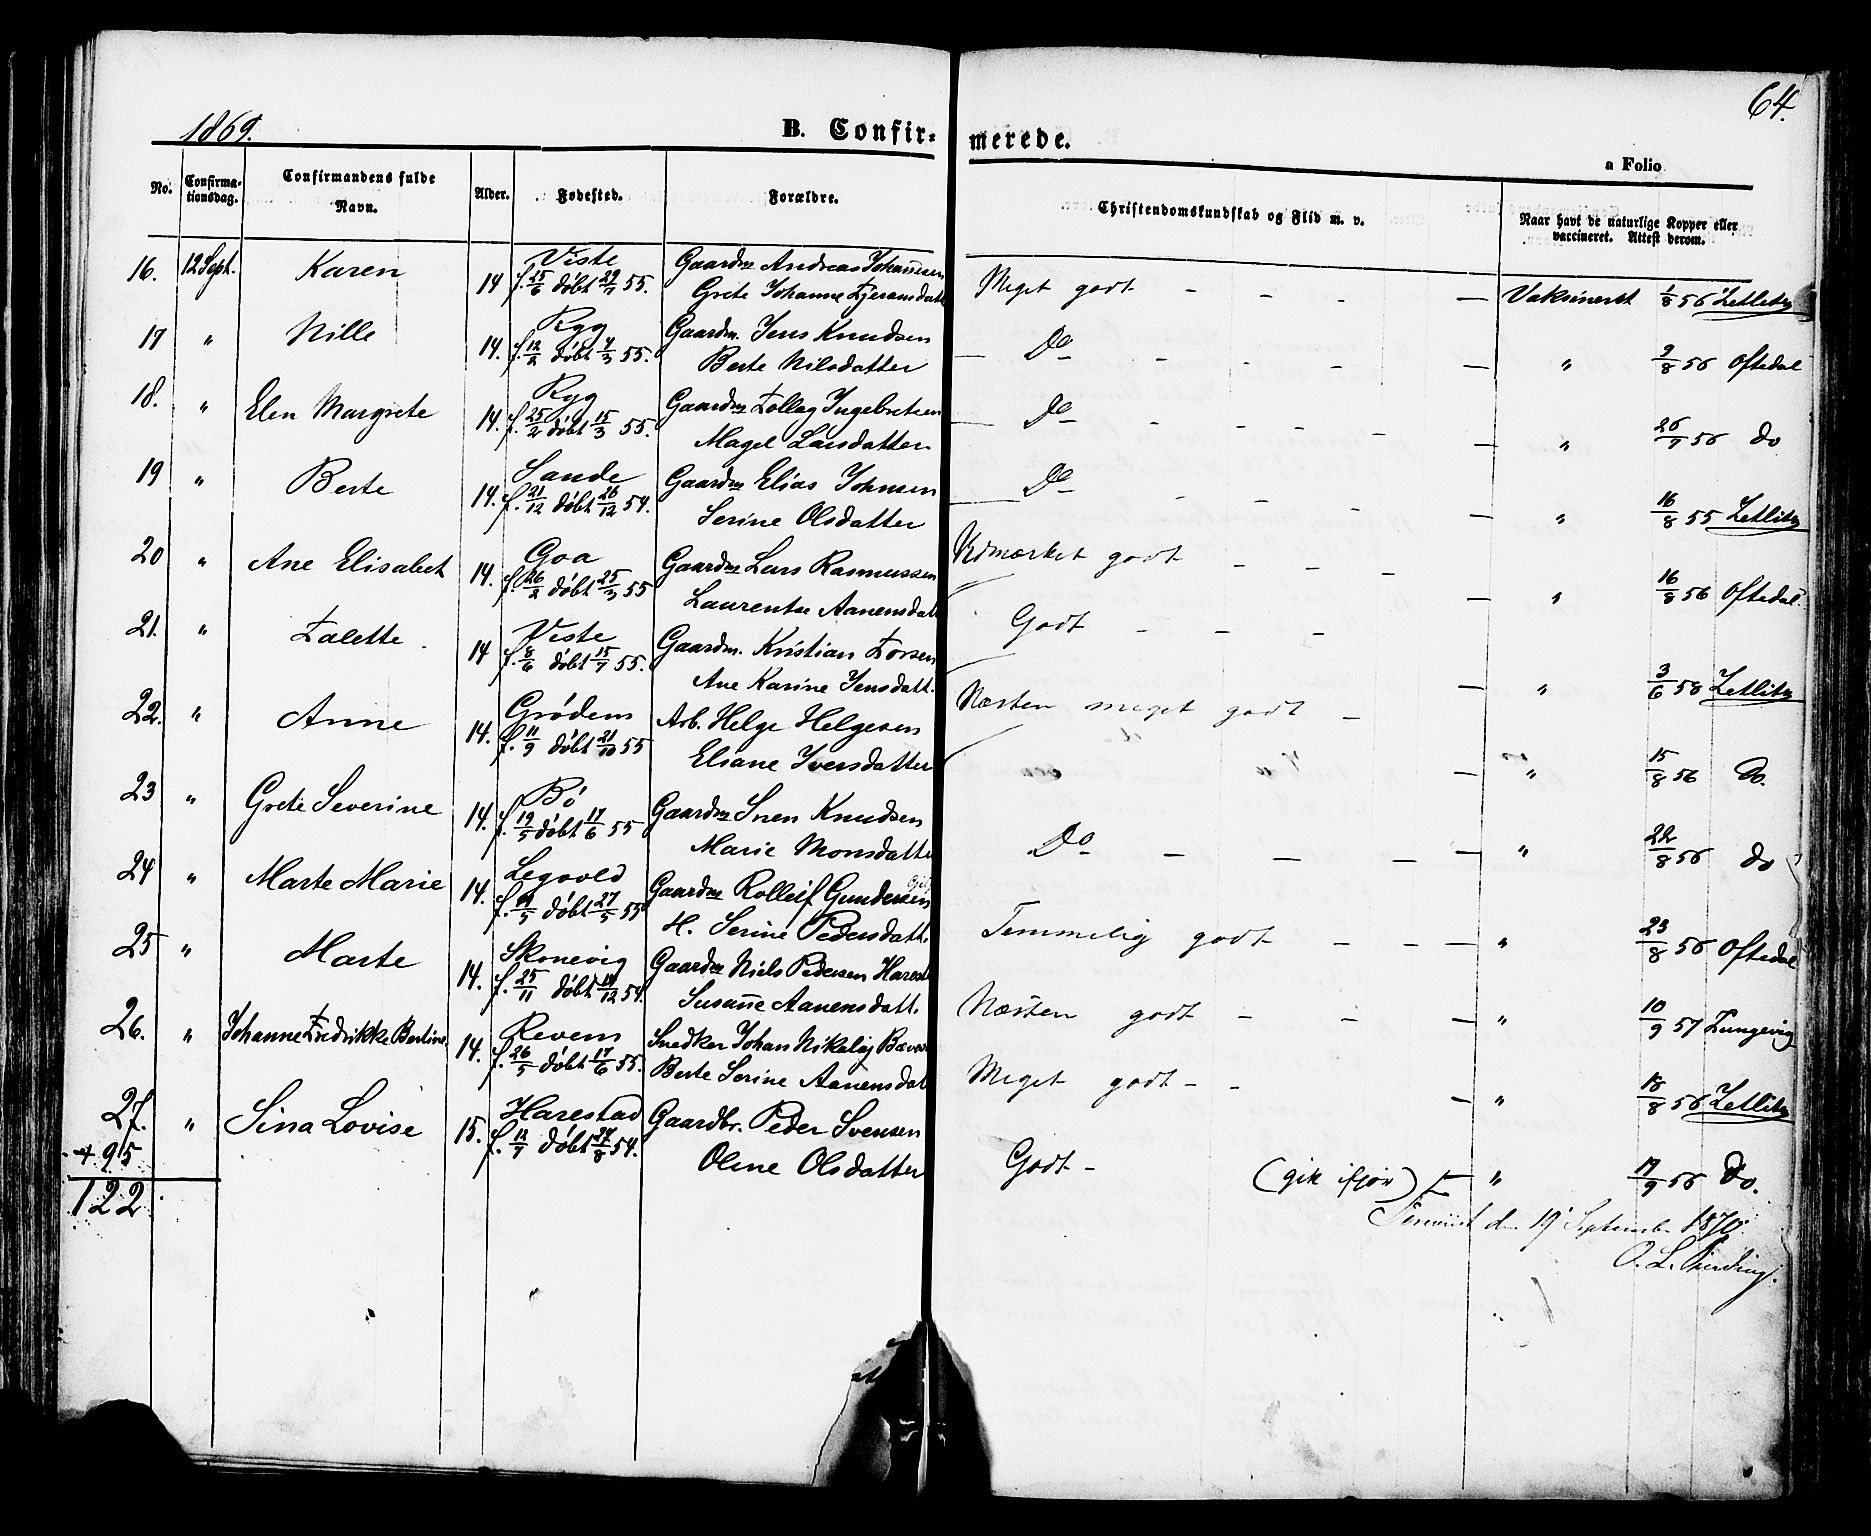 1869.
B. Confirmerede.
64.
a Folio
No. Confirmationsdag. Confirmandens fulde Navn. Alder. Fødested. Forældre. Christendomskundskab og Flid m. v. Naar havt de naturlige Kopper eller vaccineret. Attest derom.
16. 12 Sept. Karen 14 Viste Gaardm Andreas Johannesen
f. 25/6 døbt 29/7 55. Grete Johanne Tjeransdatt Meget godt - - - - Vaksineret 1/8 56 Zetlitz
17 " Nille 14. Ryg Gaardm. Jens Knudsen
f. 12/2 døbt 4/3 55. Berte Nilsdatter Do - - - - " 9/8 56 Oftedal
18. " Elen Margrete 14. Ryg Gaardm Tollag Ingebretsen
f. 25/2 døbt 15/3 55. Magel Larsdatter Do - - - - " 26/7 56 do
19 " Berte 14. Sande Gaardm Elias Johnsen
f. 21/12 døbt 26/12 54. Serine Olsdatter Do - - - - " 16/8 55 Zetlitz
20 " Ane Elisabet 14. Goa Gaardm Lars Rasmussen
f. 26/2 døbt 25/3 55 Laurentse Aanensdatt Udmærket godt - - - - " 16/8 56 Oftedal
21. " Talette 14 Viste Gaardm. Kristian Torsen
f. 8/6 døbt 15/7 55. Ane Karine Jensdatt. Godt - - - - " 3/6 58 Zetlitz
22. " Anne 14. Grødem Arb. Helge Helgesen
f. 11/9 døbt 21/10 55 Eliane Iversdatter Næsten meget godt - - " 15/8 56 do.
23 " Grete Severine 14. Bø Gaardm Sven Knudsen
f. 19/5 døbt 17/6 55 Marie Monsdatte Do - - - - " 22/8 56 do
24 " Marte Marie 14. Legvold Gaardm Rolleif Gundersen
døbt 27/5 55 H. Serine Pedersdatt. Temmelig godt - - - " 23/8 56 Oftedal
25 " Marte 14. Skonevig Gaardm Niels Pedersen Harest
f. 25/11 døbt 54. Susanne Aanensdatt. Næsten godt - - - " 10/9 57 Tungevig
26. " Johanne Fredrikke Bertine. 14. Revem Snedker Johan Nikolaj
f. 26/5 døbt 17/6 55. Berte Serine Aanensdat Meget godt - - - " 18/8 56 Zetlitz
27. " Sina Lovise 15. Harestad Gaardbr. Peder Svensen
f. 12/7 døbt 27/8 54. Oline Olsdatter Godt - (gik ifjor) - " 17/9 56 do.
+ 95
122
den 19 September 1870.
O. L.